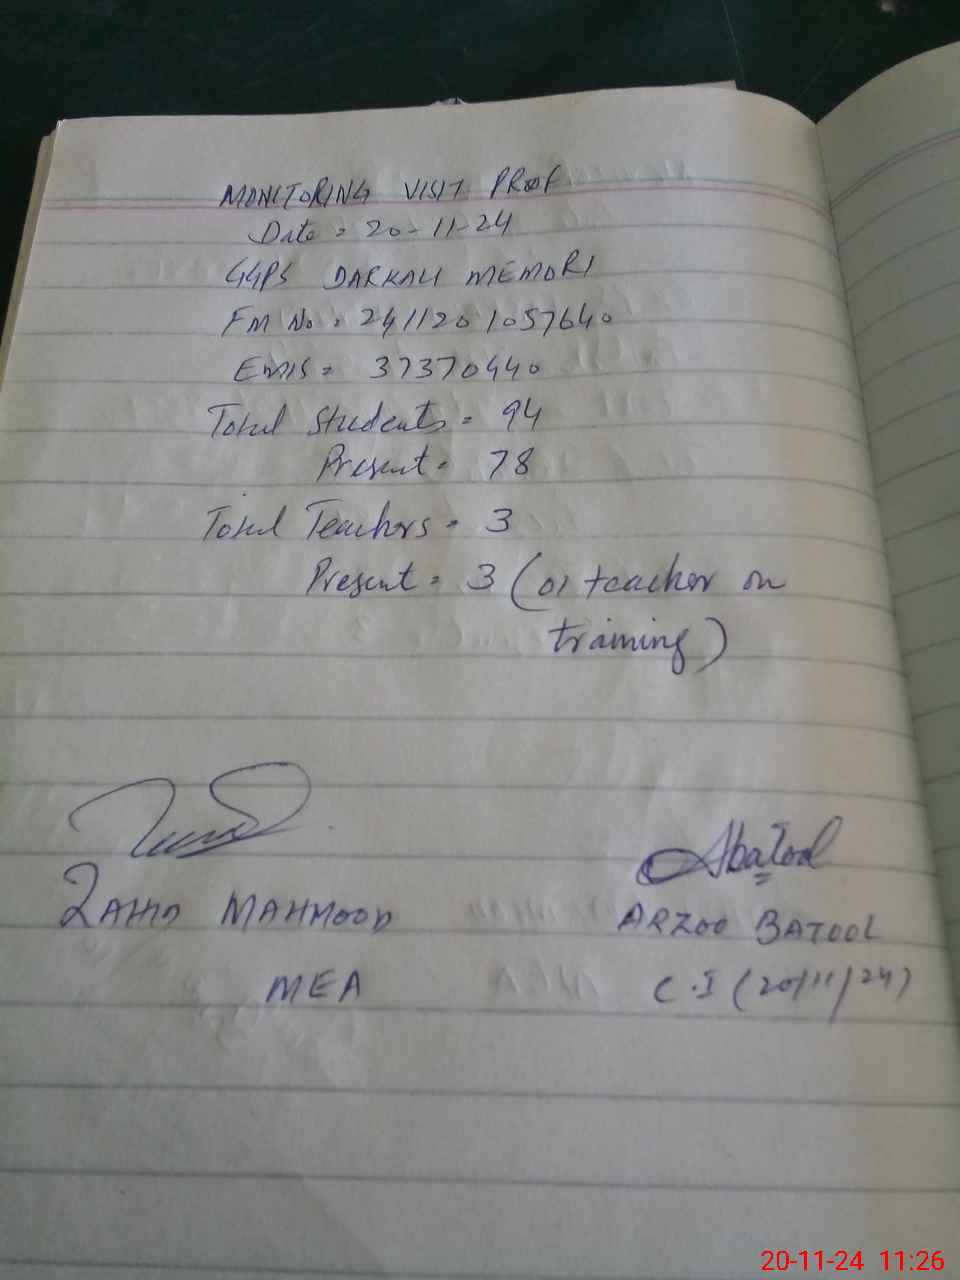 MONITORING VISIT PROOF
Date = 20-11-24
GGPS DARKALI MEMORI
FM No = 241120 1057640
EMIS = 37370440
Total Students = 94
Present = 78
Total Teachers = 3
Present = 3 (01 teacher on
training)
Abatool
ZAHID MAHMOOD
ARZOO BATOOL
MEA
C.I (20/11/24)
20-11-24 11:26